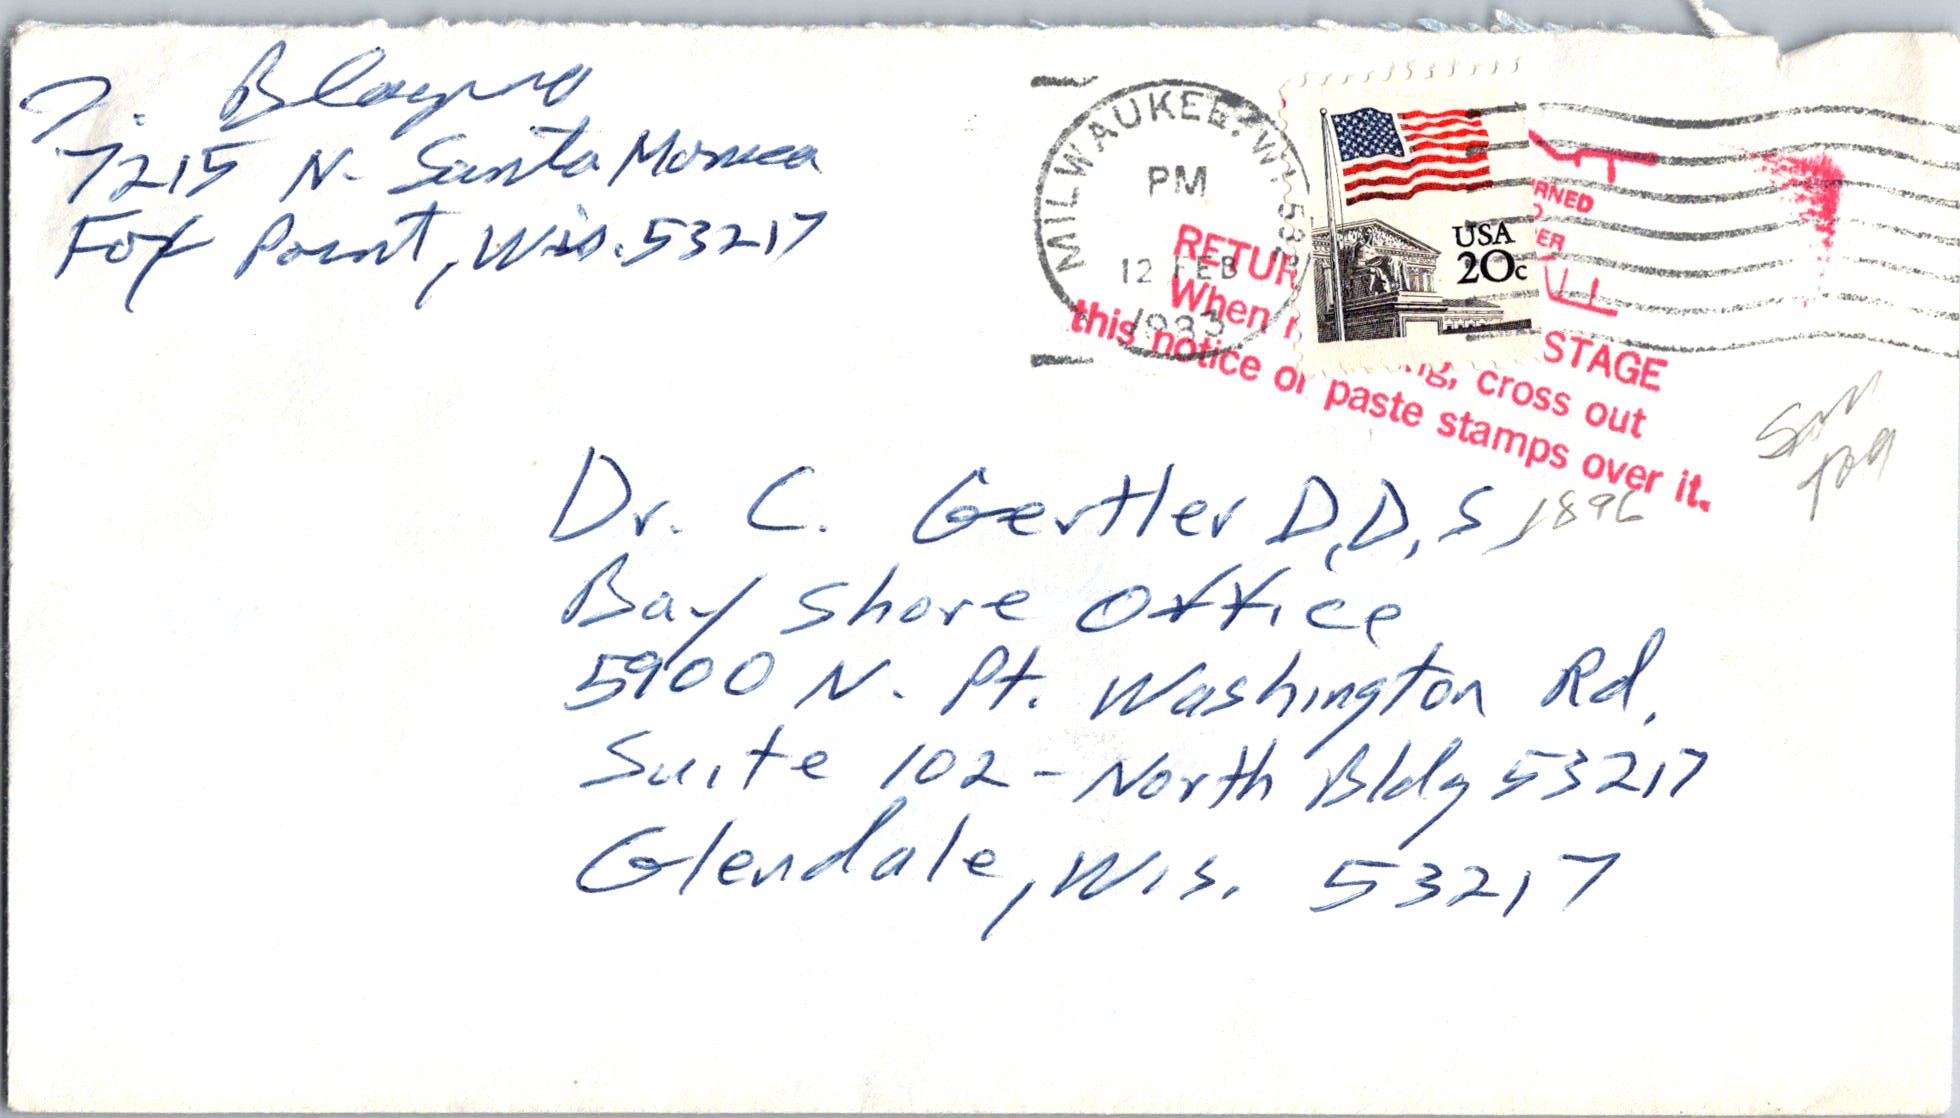 7215 N. Santa Monica
Fox Point, Wis. 53217
MILWAUKEE, WI 532
PM
12 FEB
1983
USA
20c
RNED
ER
RETUR STAGE
When ng, cross out
this notice or paste stamps over it.
Dr. C. Gertler D.D.S, 1896
Bay Shore Office
5900 N. Pt. Washington Rd.
Suite 102 - North Bldg 53217
Glendale, Wis. 53217